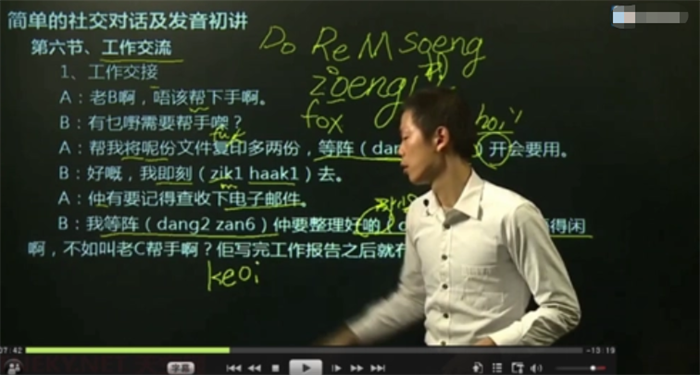 简单的社交对话及发音初讲
Do Re M Soeng
第六节、工作交流
1、工作交接
zoeng
A：老B啊，唔该帮下手啊。
fox
B：有乜嘢需要帮手㗎？
hoi1
fuk
A：帮我将呢份文件复印多两份，等阵（dan 开会要用。
B：好嘅，我即刻（zik1 haak1）去。
A：仲有要记得查收下电子邮件。
B：我等阵（dang2 zan6）仲要整理好啲（ 得闲
啊，不如叫老C帮手啊？佢写完工作报告之后就有
keoi
07:42
字幕
-13:19